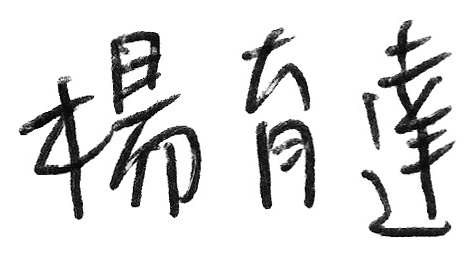 楊育達